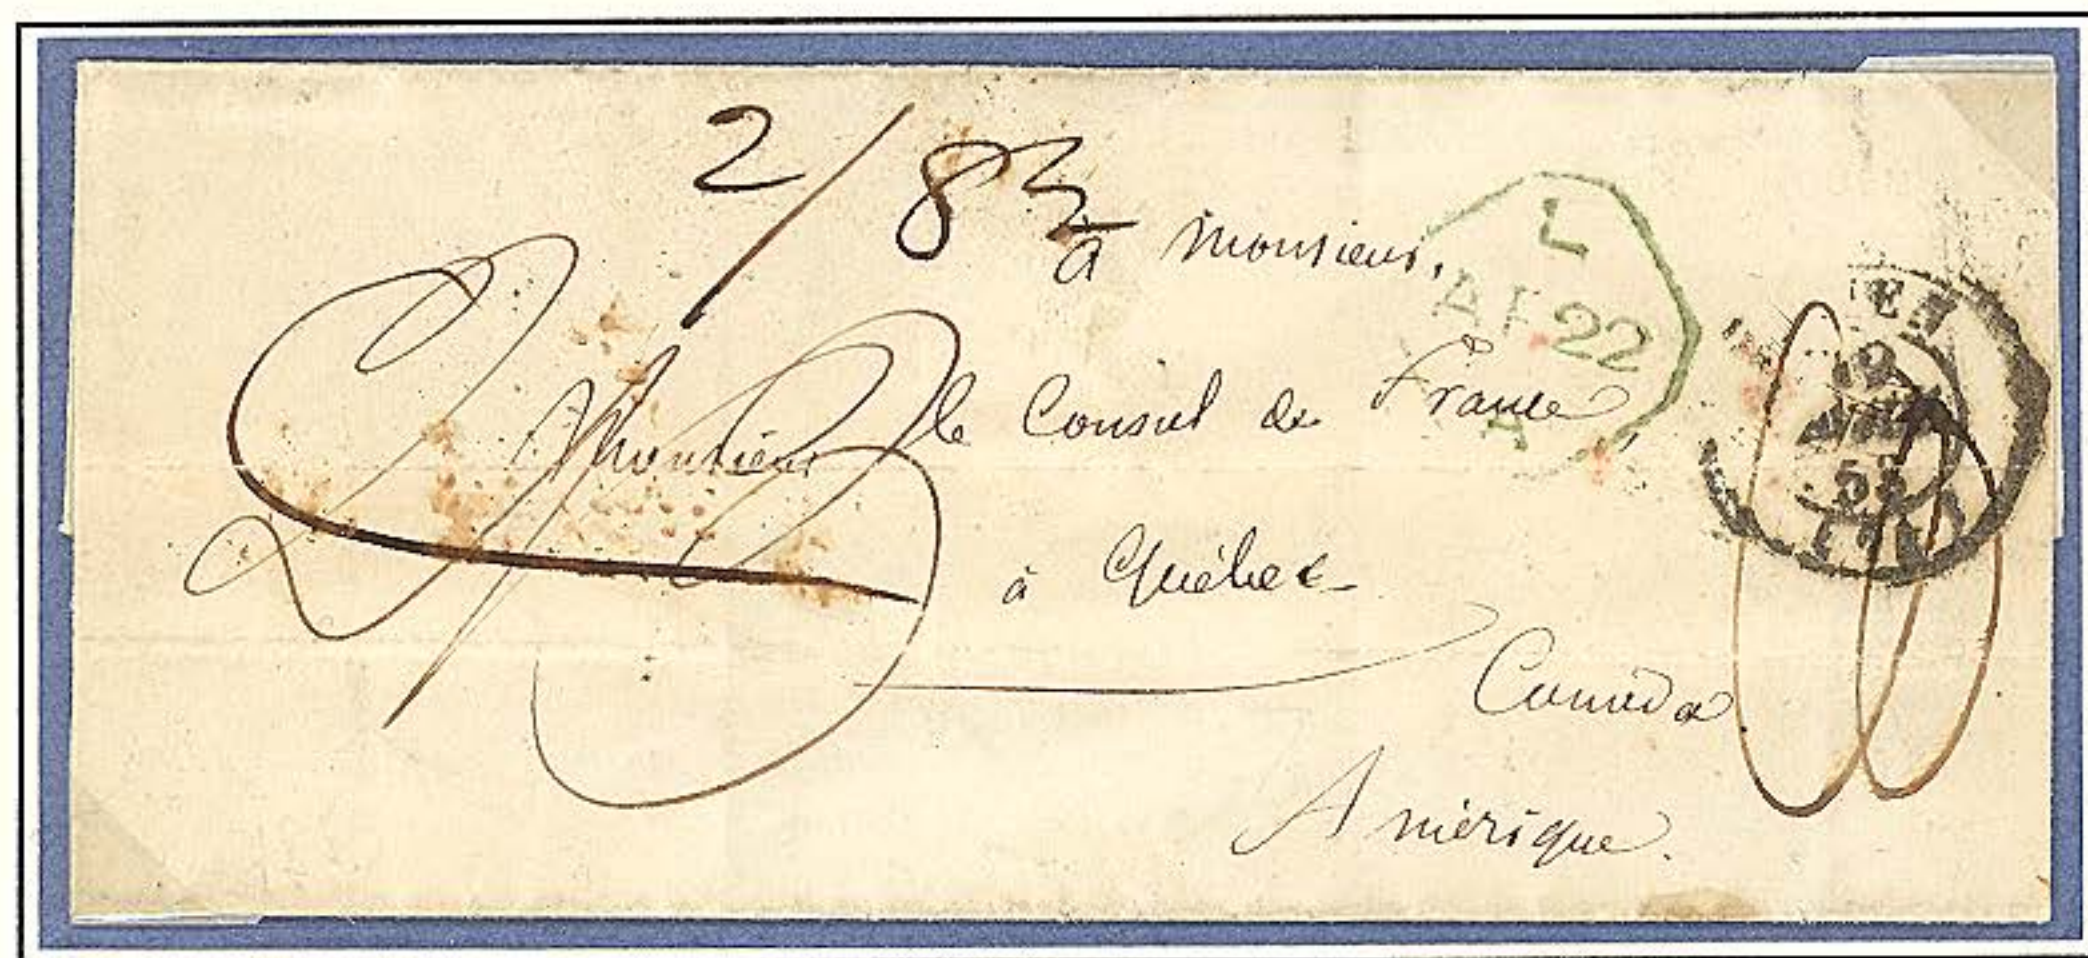 2/8½
à Monsieur,
Monsieur le Consul de France,
à Québec
Canada
Amérique.
L
22
A